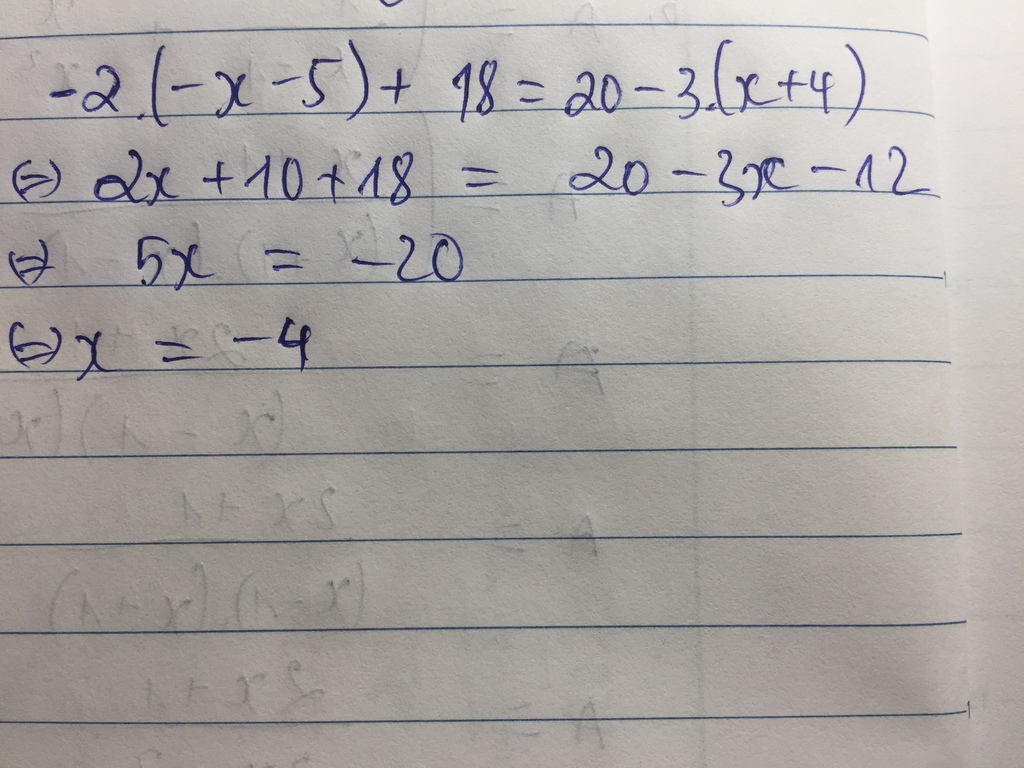 -2.(-x-5)+ 18 = 20-3.(x+4)
⇔ 2x +10+18 = 20 -3x -12
⇔ 5x = -20
⇔ x = -4